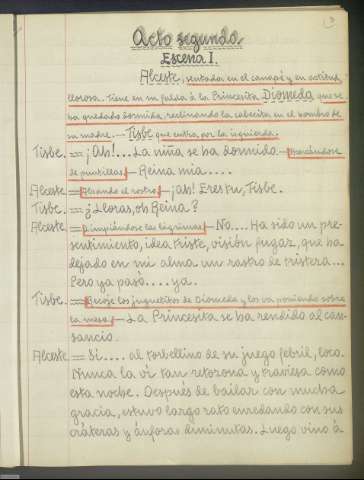 Acto segundo
Escena I.
Alceste, sentada en el canapé y en actitud
llorosa. Tiene en su falda á la Princesita Diomeda que se
ha quedado dormida, reclinando la cabecita en el hombro de
su madre. — Tisbe que entra por la izquierda.
Tisbe. = ¡Ah!... La niña se ha dormido — Acercándose
de puntillas — Reina mia.....
Alceste = Alzando el rostro — ¡Ah! Eres tu, Tisbe.
Tisbe. = ¿Lloras, oh Reina?
Alceste = Limpiándose las lágrimas — No.... Ha sido un pre-
sentimiento, idea triste, visión fugaz, que ha
dejado en mi alma un rastro de tristeza...
Pero ya pasó.... ya.
Tisbe. = Recoje los juguetitos de Diomeda y los va poniendo sobre
la mesa — La Princesita se ha rendido al can-
sancio.
Alceste = Si.... al torbellino de su juego febril, loco.
Nunca la vi tan retozona y traviesa como
esta noche. Después de bailar con mucha
gracia, estuvo largo rato enredando con sus
cráteras y ánforas diminutas. Luego vino á